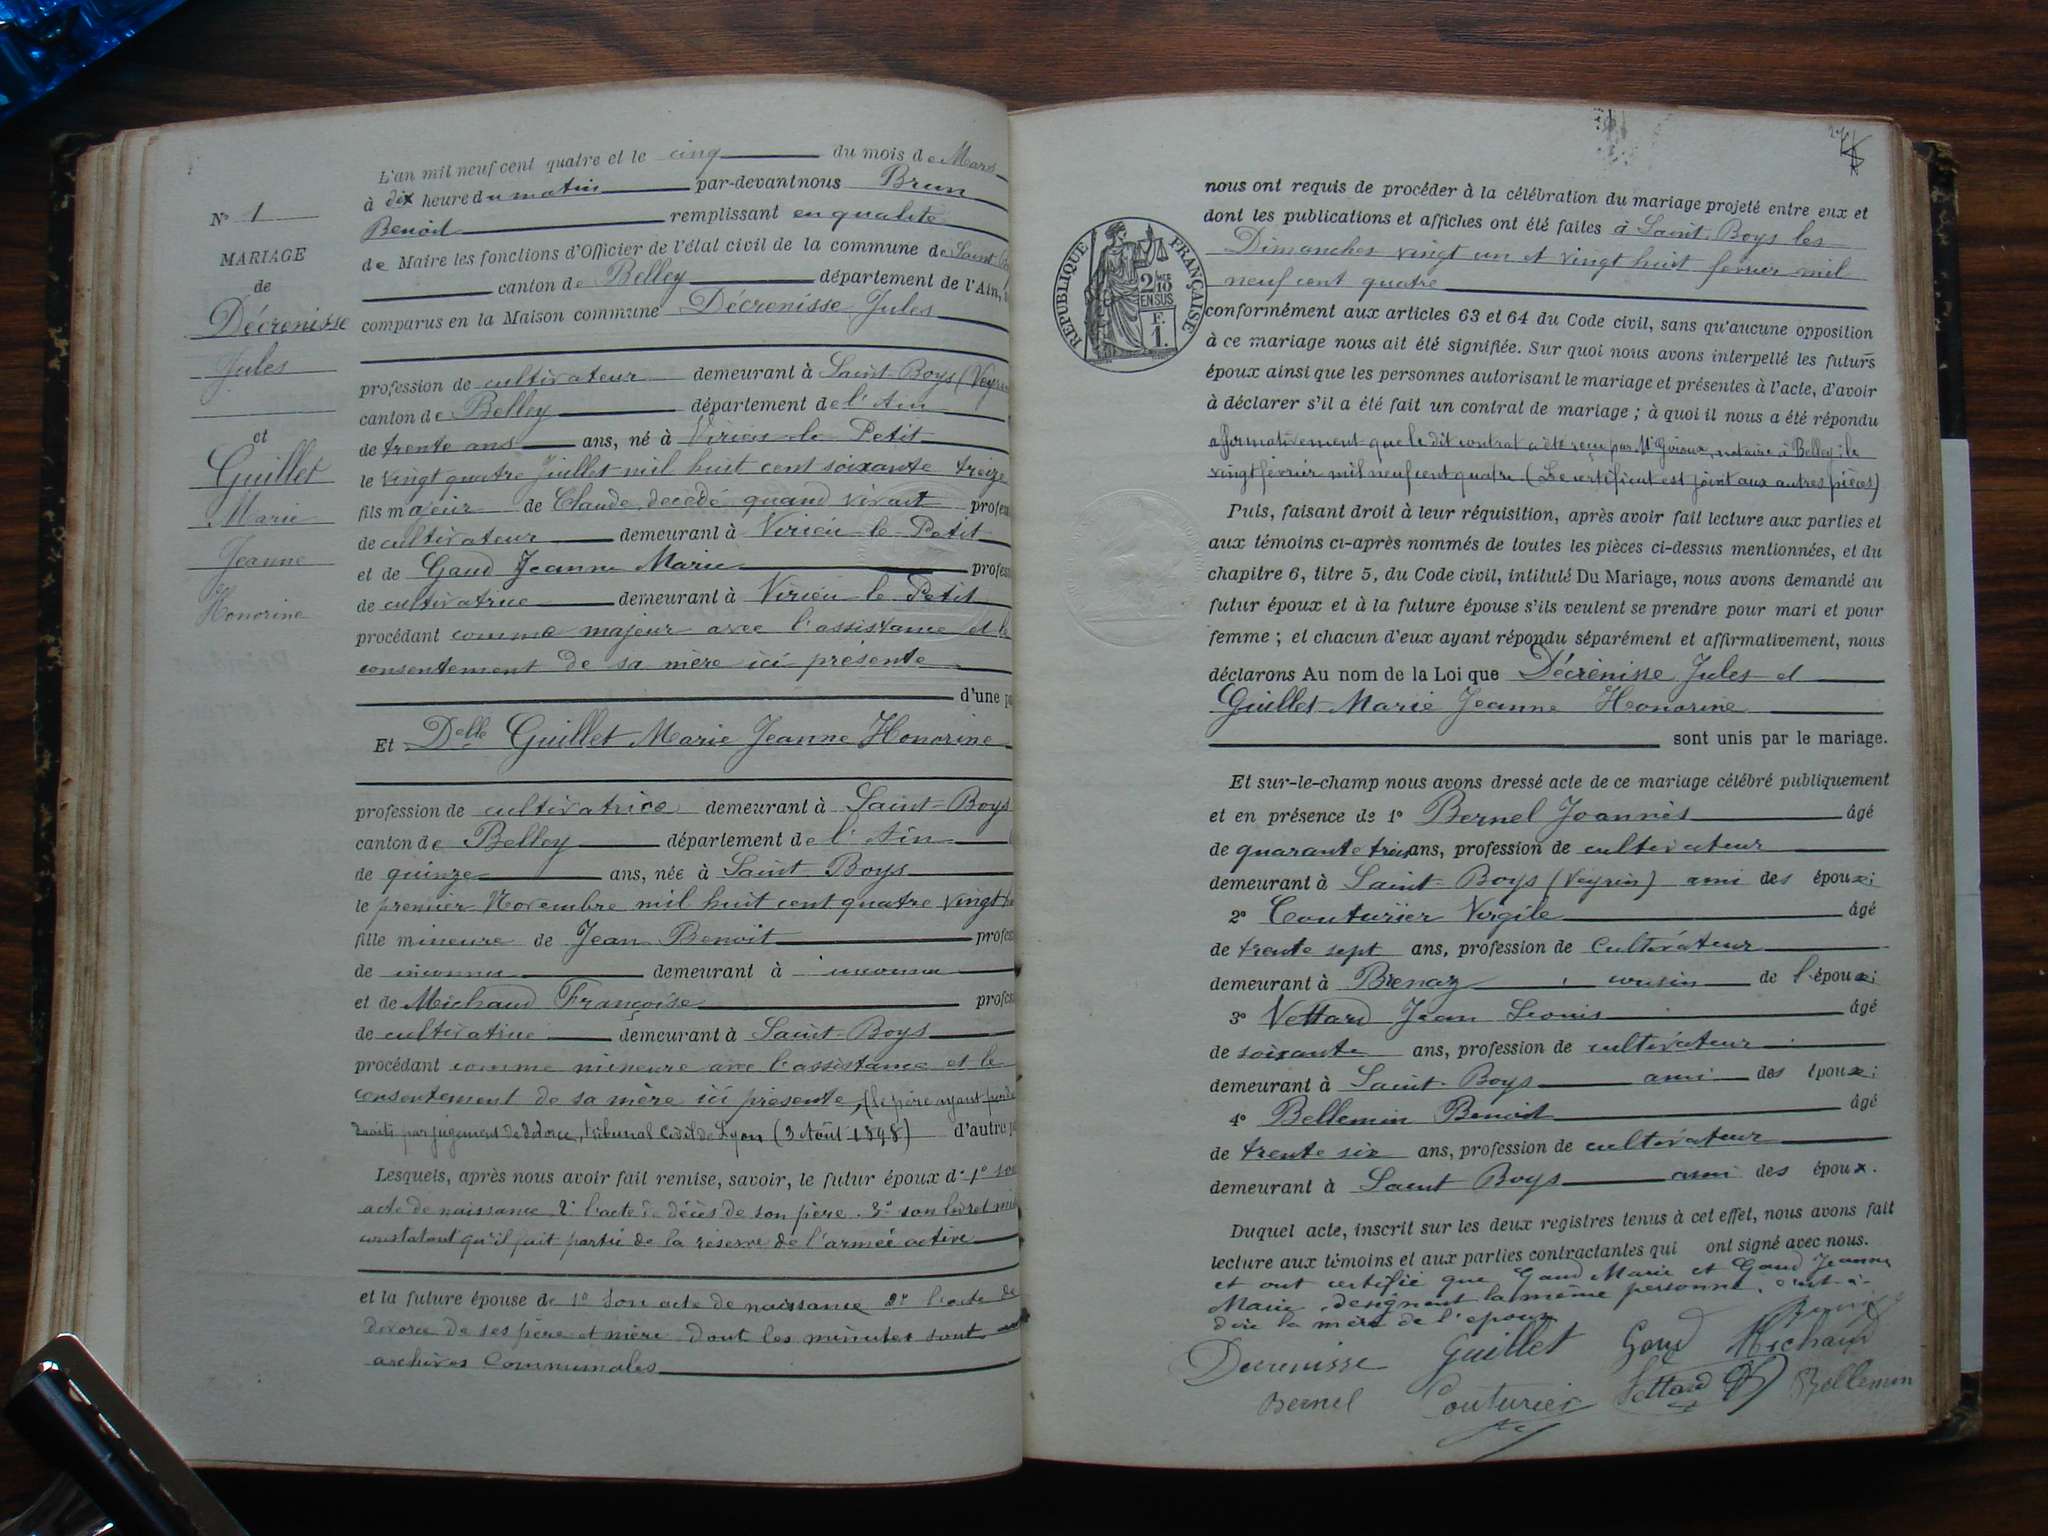 L'an mil neuf cent quatre et le cinq du mois de Mars
à dix heure du matin par-devant nous Brun
Benoit remplissant en qualité
de Maire les fonctions d'Officier de l'état civil de la commune de Saint
canton de Belley département de l'Ain,
comparus en la Maison commune Décrenisse Jules
profession de cultivateur demeurant à Saint-Boys (Veyrin
canton de Belley département de l'Ain
de trente ans ans, né à Virieu-le-Petit
le vingt quatre Juillet mil huit cent soixante treize
fils majeur de Claude, décédé quand vivait profes
de cultivateur demeurant à Virieu-le-Petit
et de Gaud Jeanne Marie profes
de cultivatrice demeurant à Virieu-le-Petit
procédant comme majeur avec l'assistance et le
consentement de sa mère ici présente
d'une p
Et Delle Guillet Marie Jeanne Honorine
profession de cultivatrice demeurant à Saint-Boys
canton de Belley département de l'Ain
de quinze ans, née à Saint-Boys
le premier Novembre mil huit cent quatre vingt
fille mineure de Jean Benoit profes
de inconnu demeurant à inconnu
et de Michaud Françoise profes
de cultivatrice demeurant à Saint-Boys
procédant comme mineure avec l'assistance et le
consentement de sa mère ici présente, (le père ayant perdu
droits par jugement de divorce, tribunal Civil de Lyon (3 Août 1898) d'autre p
Lesquels, après nous avoir fait remise, savoir, le futur époux de 1º son
acte de naissance 2º l'acte de décès de son père. 3º son livret mi
constatant qu'il fait partie de la réserve de l'armée active
et la future épouse de 1º Son acte de naissance 2º l'acte de
divorce de ses père et mère dont les minutes sont
archives Communales
Nº 1
MARIAGE
de
Décrenisse
Jules
et
Guillet
Marie
Jeanne
Honorine
nous ont requis de procéder à la célébration du mariage projeté entre eux et
dont les publications et affiches ont été faites à Saint-Boys les
Dimanches vingt un et vingt huit février mil
neuf cent quatre
conformément aux articles 63 et 64 du Code civil, sans qu'aucune opposition
à ce mariage nous ait été signifiée. Sur quoi nous avons interpellé les futurs
époux ainsi que les personnes autorisant le mariage et présentes à l'acte, d'avoir
à déclarer s'il a été fait un contrat de mariage ; à quoi il nous a été répondu
affirmativement que le dit contrat a été reçu par Me notaire à Belley, le
vingt février mil neuf cent quatre. (Le certificat est joint aux autres pièces)
Puis, faisant droit à leur réquisition, après avoir fait lecture aux parties et
aux témoins ci-après nommés de toutes les pièces ci-dessus mentionnées, et du
chapitre 6, titre 5, du Code civil, intitulé Du Mariage, nous avons demandé au
futur époux et à la future épouse s'ils veulent se prendre pour mari et pour
femme ; et chacun d'eux ayant répondu séparément et affirmativement, nous
déclarons Au nom de la Loi que Décrenisse Jules et
Guillet Marie Jeanne Honorine
sont unis par le mariage.
Et sur-le-champ nous avons dressé acte de ce mariage célébré publiquement
et en présence de 1º Bernel Joannès âgé
de quarante trois ans, profession de cultivateur
demeurant à Saint-Boys (Veyrin) ami des époux;
2º Couturier Virgile âgé
de trente sept ans, profession de Cultivateur
demeurant à Brenaz cousin de l'époux;
3º Vettard Jean Louis âgé
de soixante ans, profession de cultivateur
demeurant à Saint-Boys ami des époux;
4º Bellemin Benoit âgé
de trente six ans, profession de cultivateur
demeurant à Saint Boys ami des époux.
Duquel acte, inscrit sur les deux registres tenus à cet effet, nous avons fait
lecture aux témoins et aux parties contractantes qui ont signé avec nous.
et ont certifié que Gaud Marie et Gaud Jeanne
Marie, désignent la même personne, c'est-à-
dire la mère de l'époux
Decrenisse Guillet Gaud Michaud
Bernel Couturier Vettard Bellemin
RÉPUBLIQUE FRANÇAISE
2/10
EN SUS
F.
1.